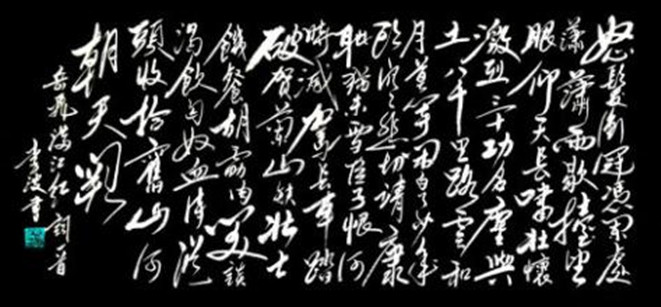 怒髮衝冠憑闌處
瀟瀟雨歇抬望
眼仰天長嘯壯懷
激烈三十功名塵與
土八千里路雲和
月莫等閑白少年
頭空悲切靖康
耻猶未雪臣子恨何
時滅駕長車踏
破賀蘭山缺壯士
饑餐胡虜肉笑
渴飲匈奴血待從
頭收拾舊山河
朝天闕
岳飛滿江紅詞一首
李書